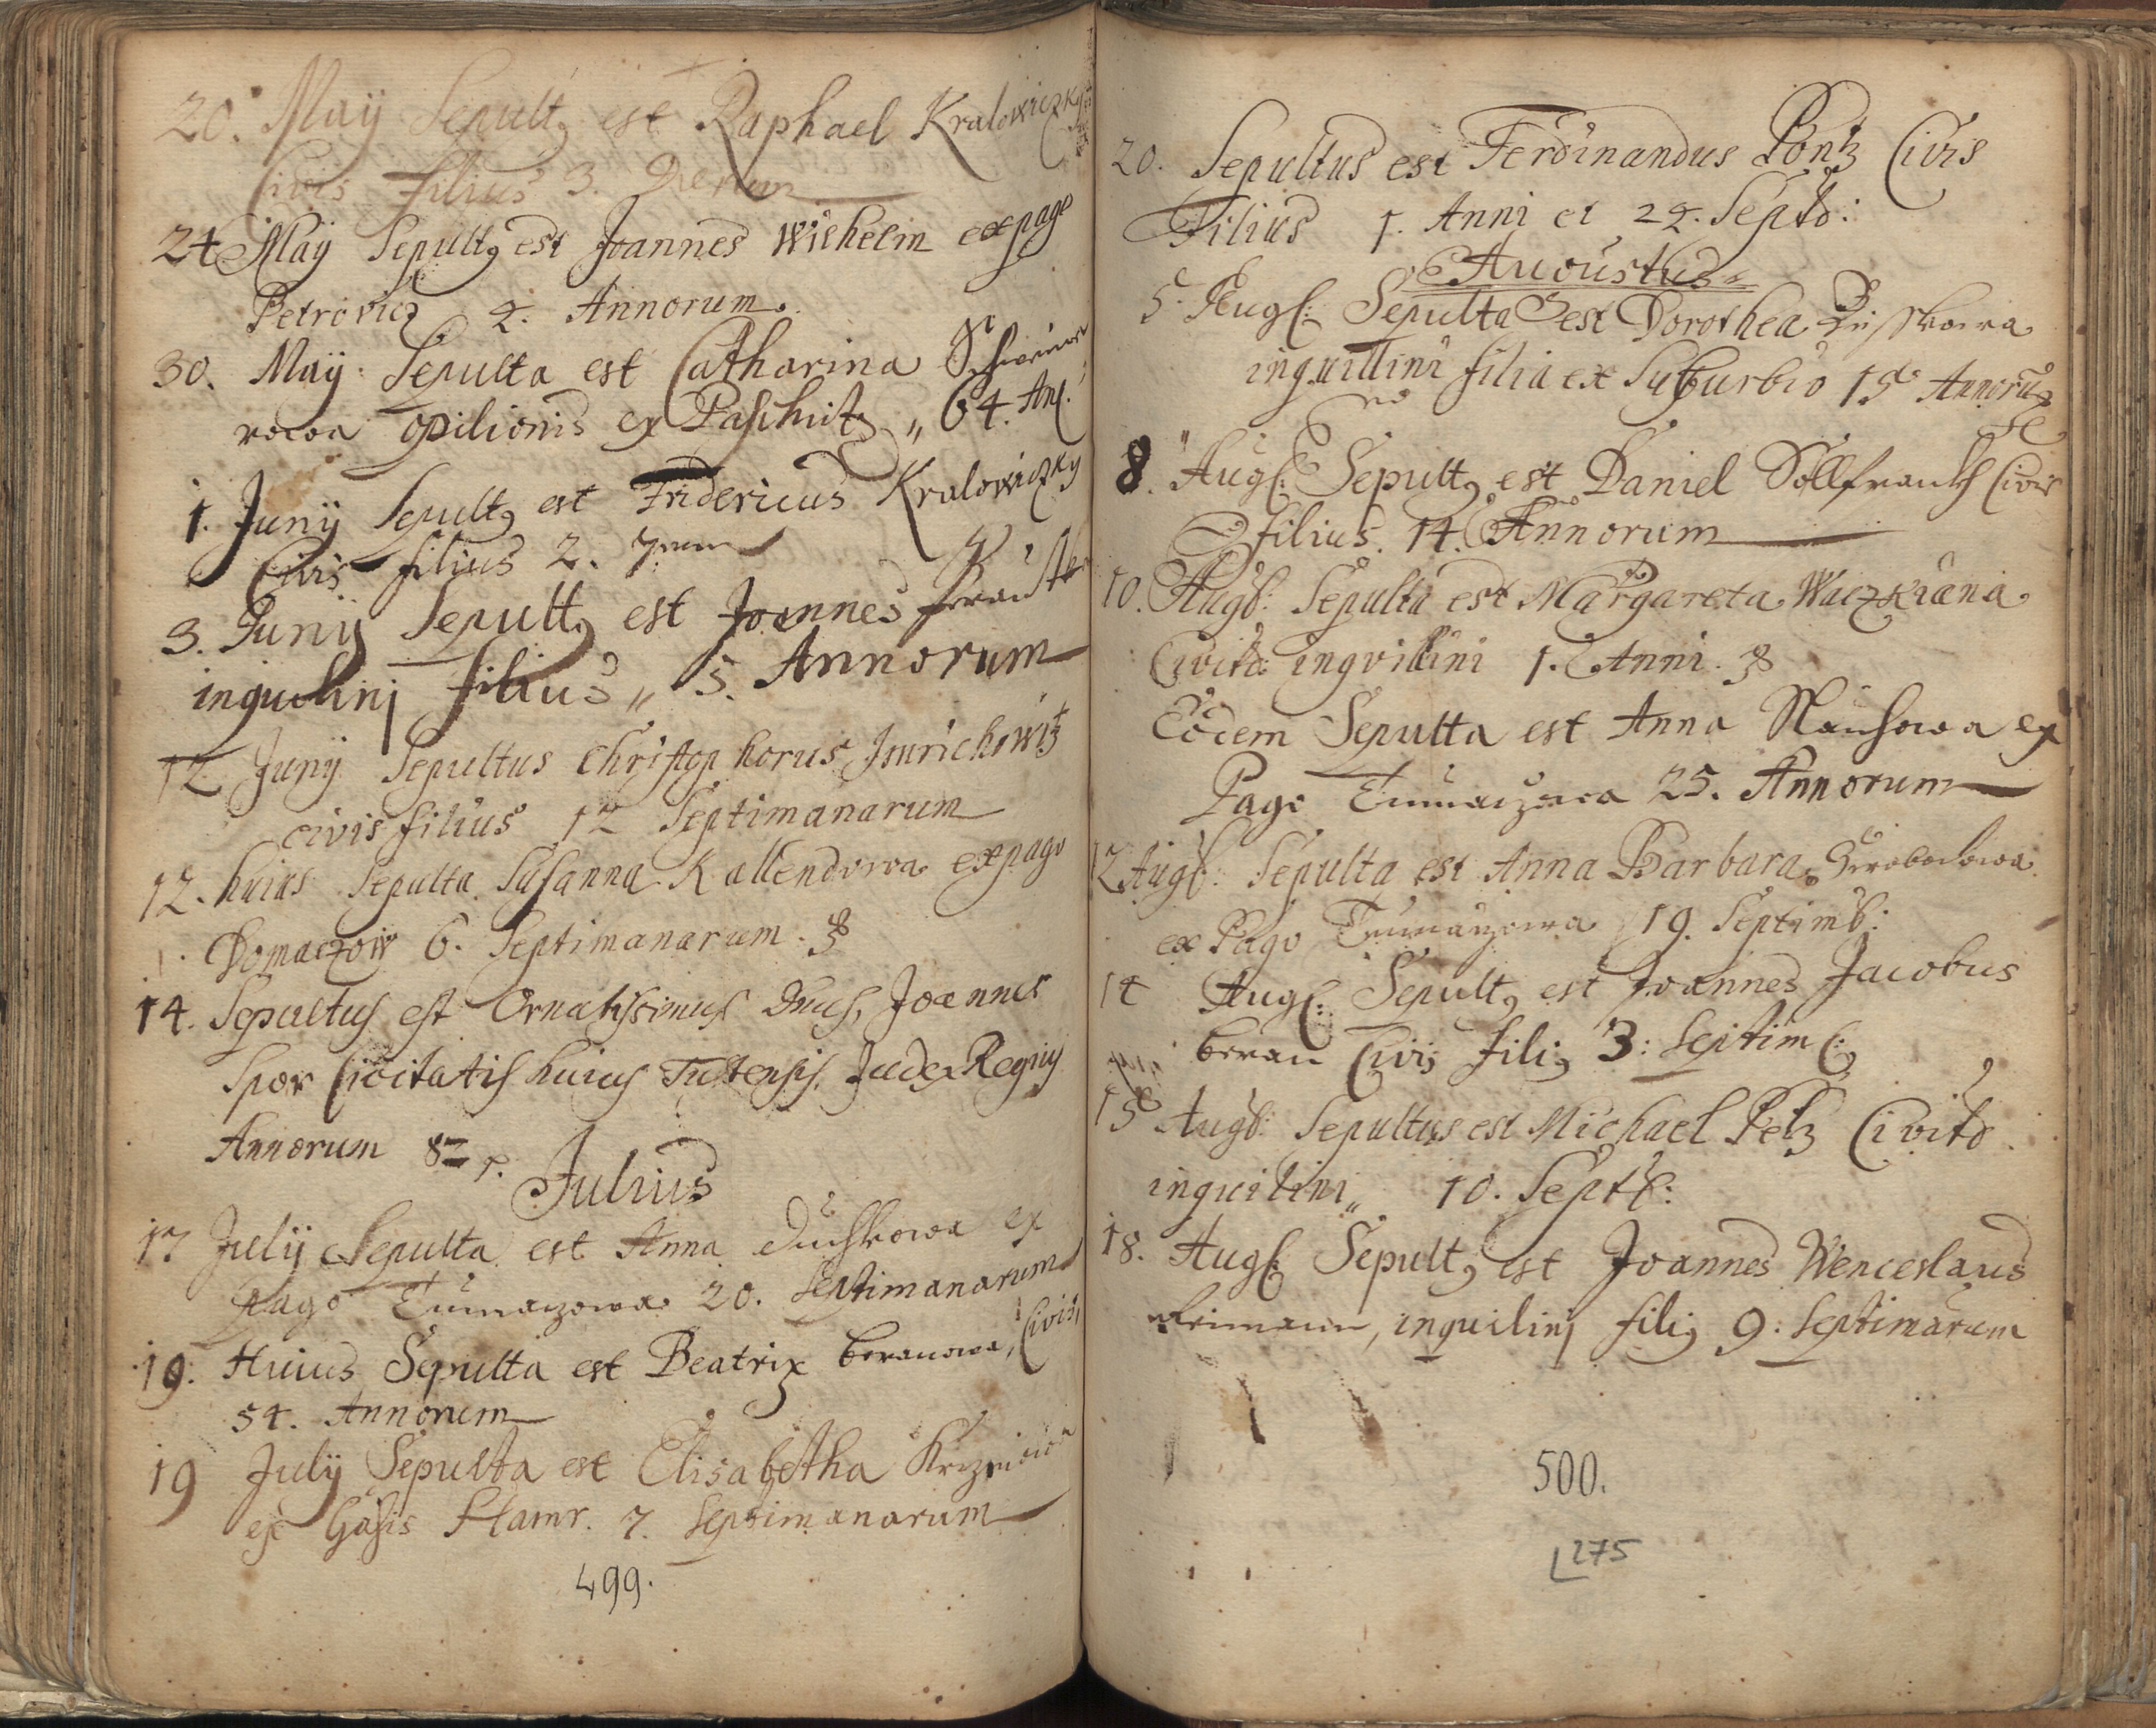 20. Maÿ Sepultꝰ est Raphael Kralowiczky
Civis filius 3. Dierum
24 Maÿ Sepultꝰ est Joannes Wilhelm ex page
Petrovicz 2. Annorum.
30. Maÿ. Sepulta est Catharina
opilionis ex Paschnitz „ 64. An:
1. Junÿ Sepultꝰ est Fridericus Kralowiczky
Civis filius 2.
3. Junÿ Sepultꝰ est Joannes
inquilinj filius „ 5. Annorum
12 Junÿ Sepultus Christophorus Imrichowitz
civis filius 12 Septimanarum
12. huius Sepulta Susanna Kallendowa ex pago
Domaczow 6. Septimanarum.
14. Sepultus est Ornatissimus Dnus, Joannes
Spor Civitatis huius Tustensis. Judex Regius
Annorum 87
Julius
17 Julÿ Sepulta est Anna Duchkowa ex
Pago Tumaczowa 20. Septimanarum
19. Huius Sepulta est Beatrix beranowa, Civis,
54. Annorum
19 Julÿ Sepulta est Elisabetha
ex Casis Stamr. 7. Septimanarum
499.
20. Sepultus est Ferdinandus Pontz Civis
Filius 1. Anni et 24. Septb:
Augustus
5. Augs: Sepulta est Dorothea
inquillini filia ex Suburbio 15 Annorū
8. Augs: Sepultꝰ est Daniel Söllfranckh Civis
filius. 14. Annorum
10. Augb: Sepulta est Margareta Waczkiana
Civitb: inqvillini 1. Anni.
Eodem Sepulta est Anna ex
Pago Tumaczowa 25. Annorum
12 Augb: Sepulta est Anna Barbara
ex Pago Tumaczowa 19. Septimb:
14 Augs: Sepultꝰ est Joannes Jacobus
beran Civis filiꝰ 3: Septim:
15 Augb: Sepultus est Michael Peltz Civitb.
inquilini „ 10. Septb:
18. Augs: Sepultꝰ est Joannes Wenceslaus
inquilinj filiꝰ 9: Septimarum
500.
275